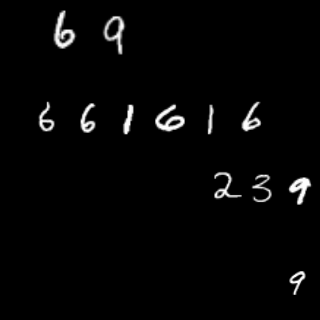 6 9
6 6 1 6 1 6
2 3 9
9